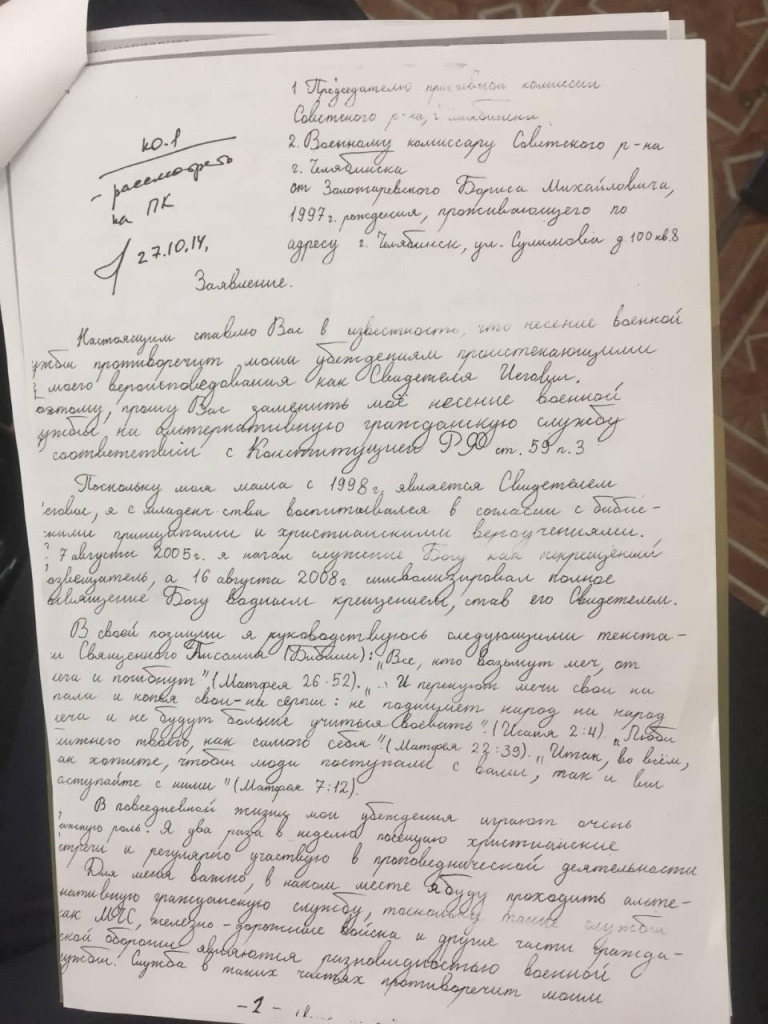 1 Председателю призывной комиссии
Советского р-на, г. Челябинска
2. Военному комиссару Советского р-на
г. Челябинска
от Золотаревского Бориса Михайловича,
1997г. рождения, проживающего по
адресу г. Челябинск, ул. Сулимова д. 100 кв. 8
ко. 1
- рассмотреть
на ПК
27.10.14,
Заявление.
Настоящим ставлю Вас в известность, что несение военной
ужбы противоречит моим убеждениям проистекающими
моего вероисповедования как Свидетеля Иеговы.
оэтому, прошу Вас заменить моё несение военной
ужбы на альтернативную гражданскую службу
соответствии с Конституцией РФ ст. 59 п. 3
Поскольку моя мама с 1998г. является Свидетелем
еговы, я с младенчества воспитывался в согласии с библей-
скими принципами и христианскими вероучениями.
7 августа 2005г. я начал служение Богу как некрещёный
озвещатель, а 16 августа 2008г. символизировал полное
освящение Богу водным крещением, став его Свидетелем.
В своей позиции я руководствуюсь следующими текста-
и Священного Писания (Библии): „Все, кто возьмут меч, от
еча и погибнут" (Матфея 26:52). „... И перекуют мечи свои на
рала и копья свои - на серпы: не поднимет народ на народ
еча и не будут больше учиться воевать". (Исаия 2:4). „Люби
лижнего твоего, как самого себя" (Матфея 22:39). „Итак, во всём,
ак хотите, чтобы люди поступали с вами, так и вы
оступайте с ними" (Матфея 7:12).
В повседневной жизни мои убеждения играют очень
ажную роль. Я два раза в неделю посещаю христианские
стречи и регулярно участвую в проповеднической деятельности
Для меня важно, в каком месте я буду проходить альте-
нативную гражданскую службу, поскольку такие службы
как МЧС, железно-дорожные войска и другие части гражда-
ской обороны являются разновидностью военной
лужбы. Служба в таких частях противоречит моим
- 1 -